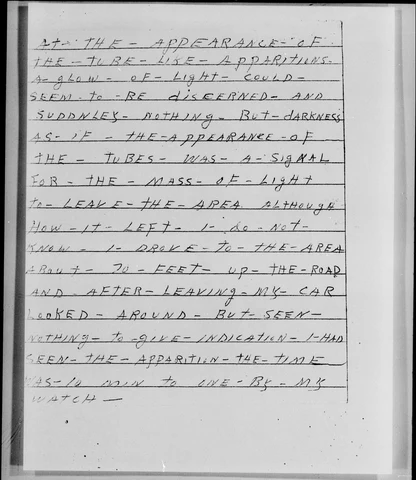 At- THE- APPEARANCE- OF
THE- TUBE- LIKE- APPARITIONS.
A- GLOW- OF- LIGHT- COULD-
SEEM- to- BE disCERNED- AND
SUDDNLEY- NOTHING- BUT- dARKNESS
AS- IF- THE- APPEARANCE- OF
THE- TUBES- WAS- A- SIGNAL
FOR- THE- MASS- OF- LIGHT
to- LEAVE- THE- AREA ALTHOUGH
HOW- IT- LEFT- I- do- NOT-
KNOW- I- DROVE- TO- THE- AREA
ABOUT- 70- FEET- UP- THE- ROAD
AND- AFTER- LEAVING- MY- CAR
LOOKED- AROUND- BUT- SEEN-
NOTHING- to- GIVE- INDICATION- I- HAD
SEEN- THE- APPARITION- THE- TIME
WAS- 10 MIN to ONE- BY- MY
WATCH-